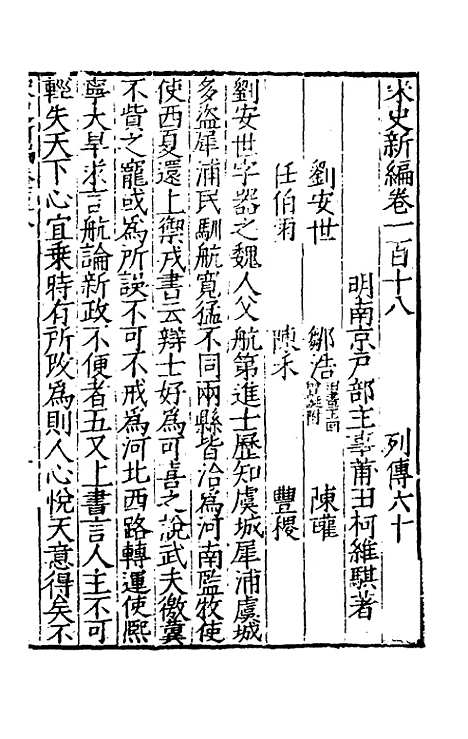 宋史新編卷一百十八 列傳六十
明南京戶部主事莆田柯維騏著
劉安世 鄒浩 陳瓘
任伯雨 陳禾 豐稷
劉安世字器之魏人父航第進士歷知虞城犀浦虞城
多盜犀浦民馴航寬猛不同兩縣皆治為河南監牧使
使西夏還上禦戎書云辯士好為可喜之說武夫徼冀
不貲之寵或為所誤不可不戒為河北西路轉運使熙
寧大旱求言航論新政不便者五又上書言人主不可
輕失天下心宜乗時有所改為則人心悅天意得矣不